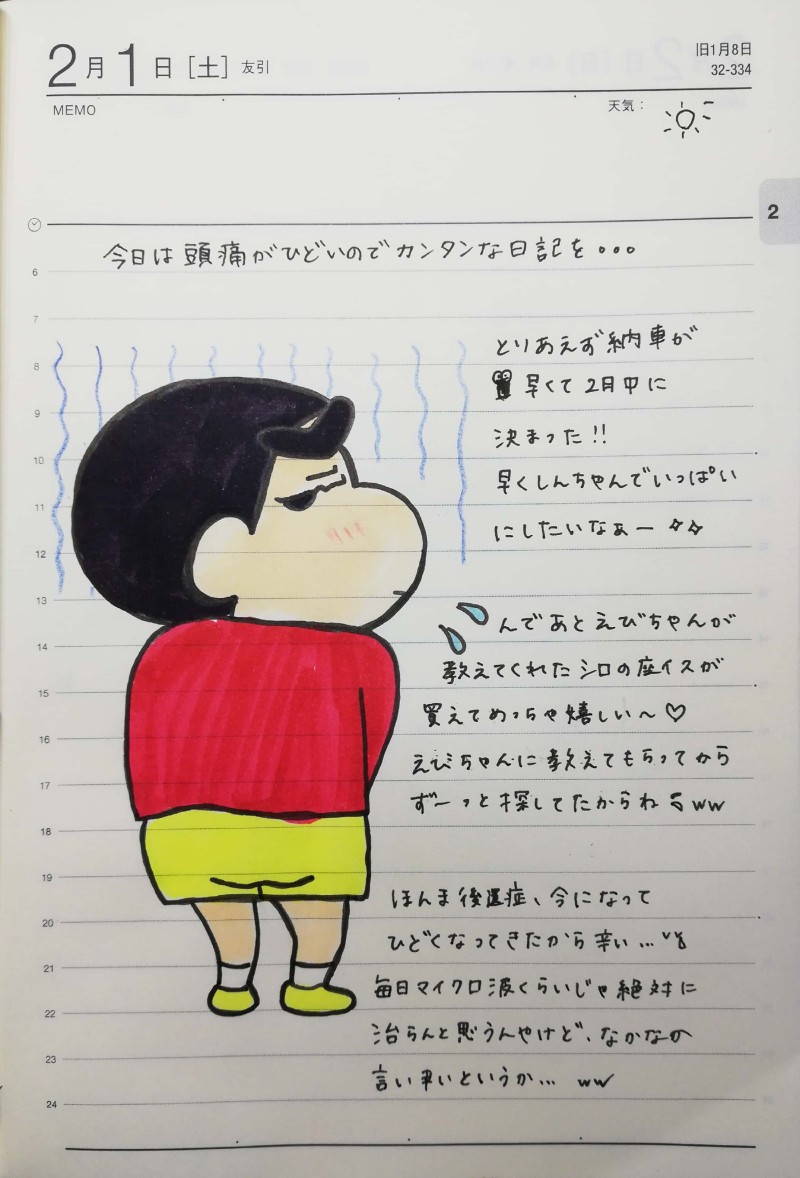 2月1日[土] 友引
旧1月8日
32-334
MEMO
天気:
2
今日は頭痛がひどいのでカンタンな日記を...
6
7
8
9
10
11
12
13
14
15
16
17
18
19
20
21
22
23
24
とりあえず納車が
早くて2月中に
決まった!!
早くしんちゃんでいっぱい
にしたいなぁー
んであとえびちゃんが
教えてくれたシロの座イスが
買えてめっちゃ嬉しい〜♡
えびちゃんに教えてもらってから
ず〜っと探してたからねww
ほんま後遺症、今になって
ひどくなってきたから辛い...
毎日マイクロ波くらいじゃ絶対に
治らんと思うんやけど、なかなか
言い辛いというか... ww